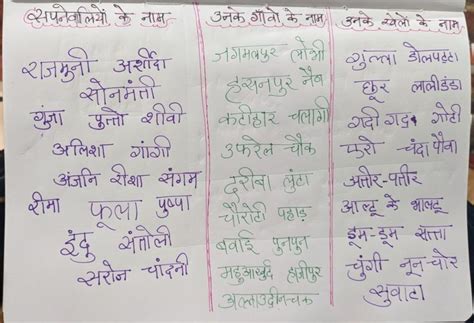 सपनेवालियों के नाम
राजमुनी अर्शीदा
सोनमंती
गुंजा फुन्तो शीवी
अलिशा गांगी
अंजनि रीशा संगम
सीमा फूला पुष्पा
इंदु संतोली
सरोज चांदनी
उनके गाँवो के नाम
जगमलपुर लोश्री
हसनपुर नैब
कटीहार चलागी
उफरैल चौक
दरीबा लुंटा
चौरोटी पहाड़
बवाई पुनपुन
महुआखुर्द हाजीपुर
अल्लाउद्दीनचक
उनके खेलो के नाम
गुल्ला डोलपहटा
छूर लालीडंडा
गदी गद्द गोटी
फरो चंदा पौवा
अत्तीर-पत्तीर
आलू के भालू
डूम-डूम सत्ता
चुंगी नून-चोर
सुवाटा